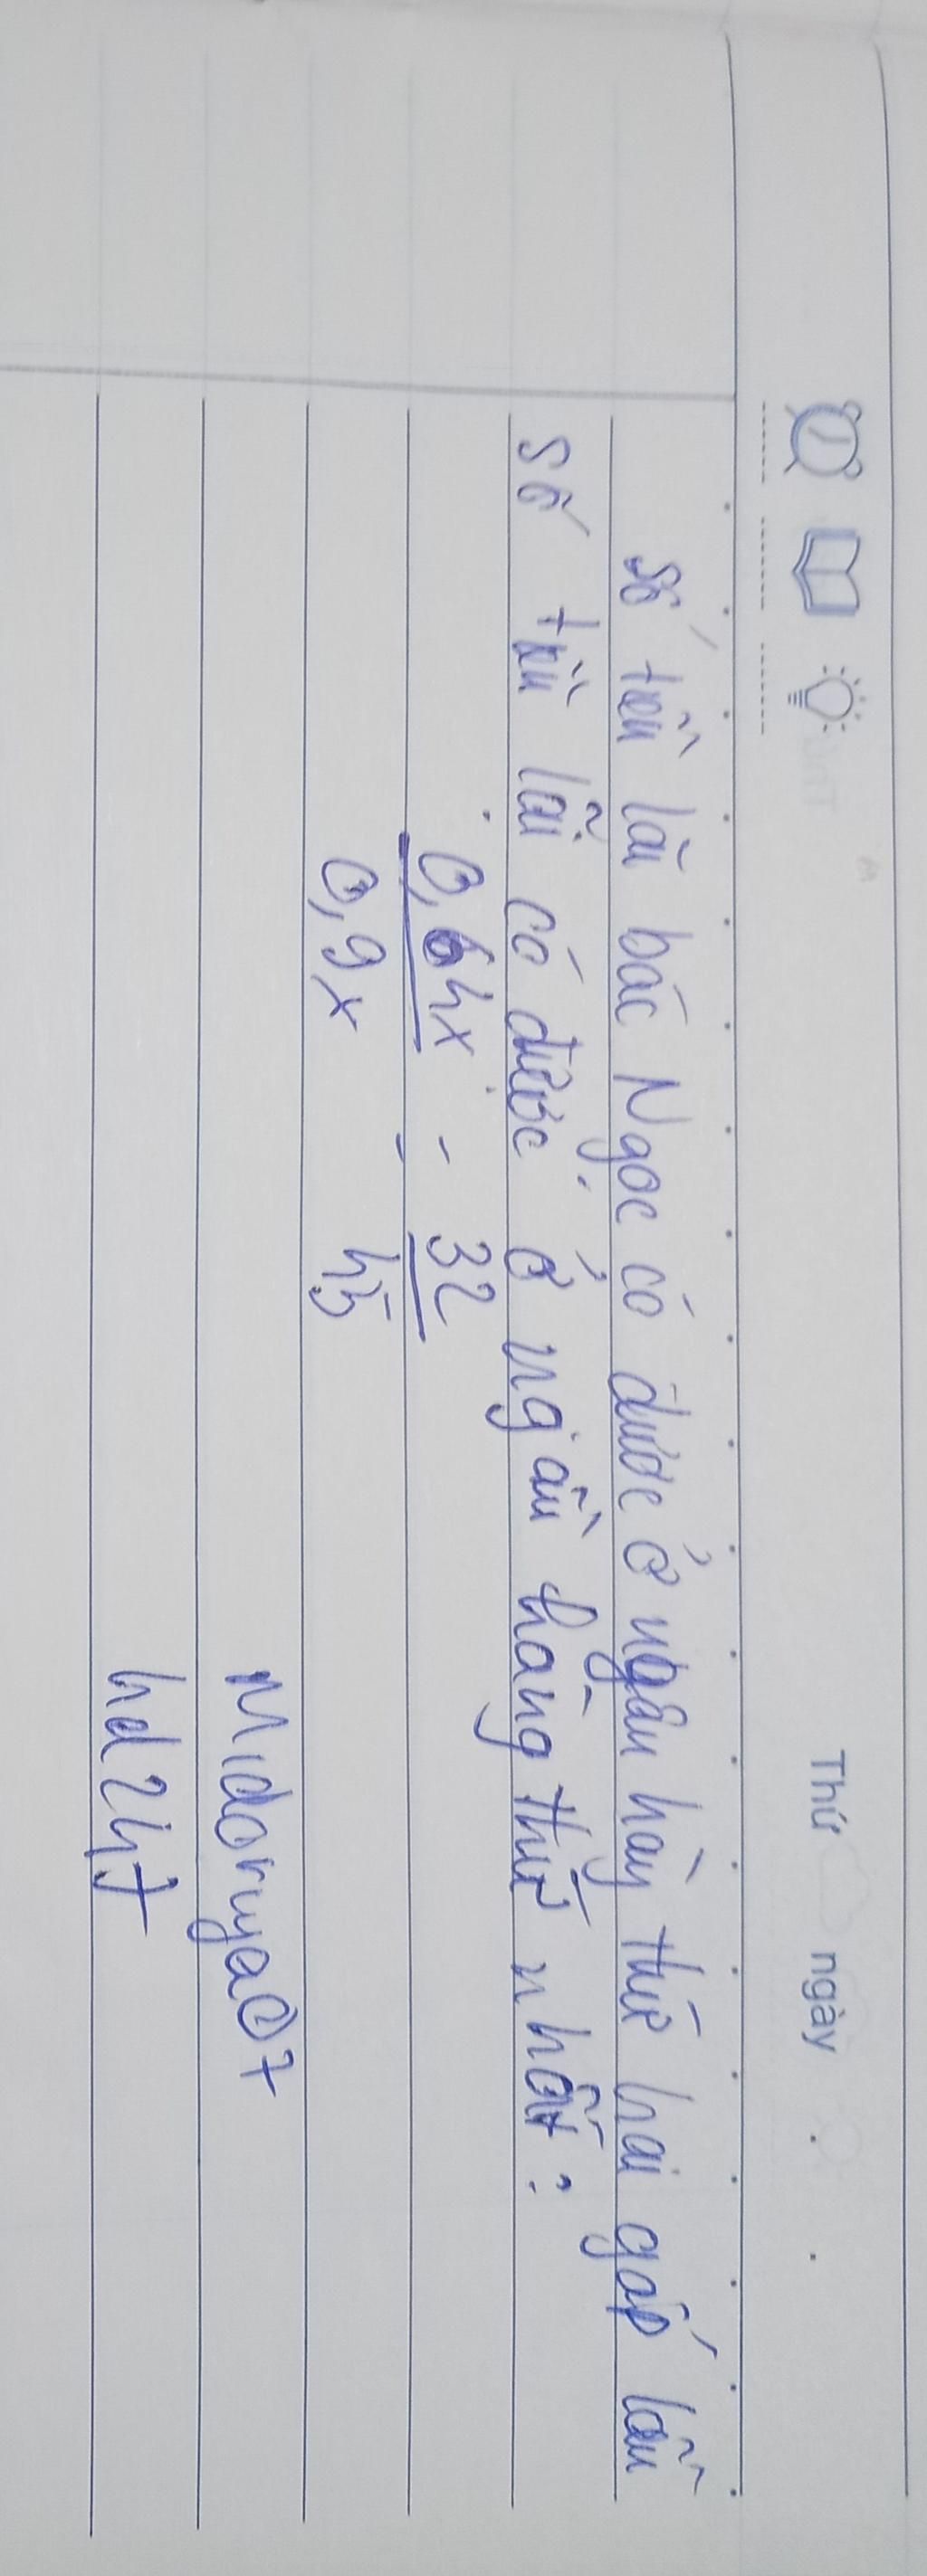 Thứ ngày
Số tiền lãi bác Ngọc có được ở ngân hàng thứ hai gấp lần
số tiền lãi có được ở ngân hàng thứ nhất:
0,64x = 32
0,9x 45
Midoruya07
hd247